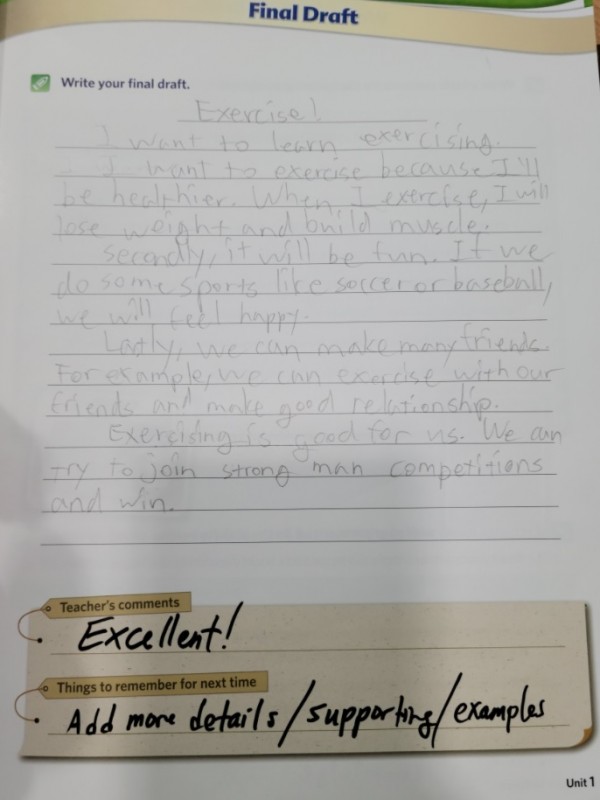 Final Draft
Write your final draft.
Exercise!
I want to learn exercising.
I want to exercise because I'll
be healthier. When I exercise, I will
lose weight and build muscle.
Secondly, it will be fun. If we
do some sports like soccer or baseball,
we will feel happy.
Lastly, we can make many friends.
For example, we can exercise with our
friends and make good relationship.
Exercising is good for us. We can
try to join strong man competitions
and win.
Teacher's comments
Excellent!
Things to remember for next time
Add more details/supporting/examples
Unit 1